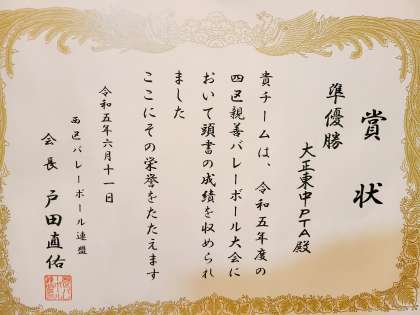 賞状
準優勝
大正東中PTA殿
貴チームは、令和五年度の
四区親善バレーボール大会に
おいて頭書の成績を収められ
ました
ここにその栄誉をたたえます
令和五年六月十一日
西区バレーボール連盟
会長 戸田直佑